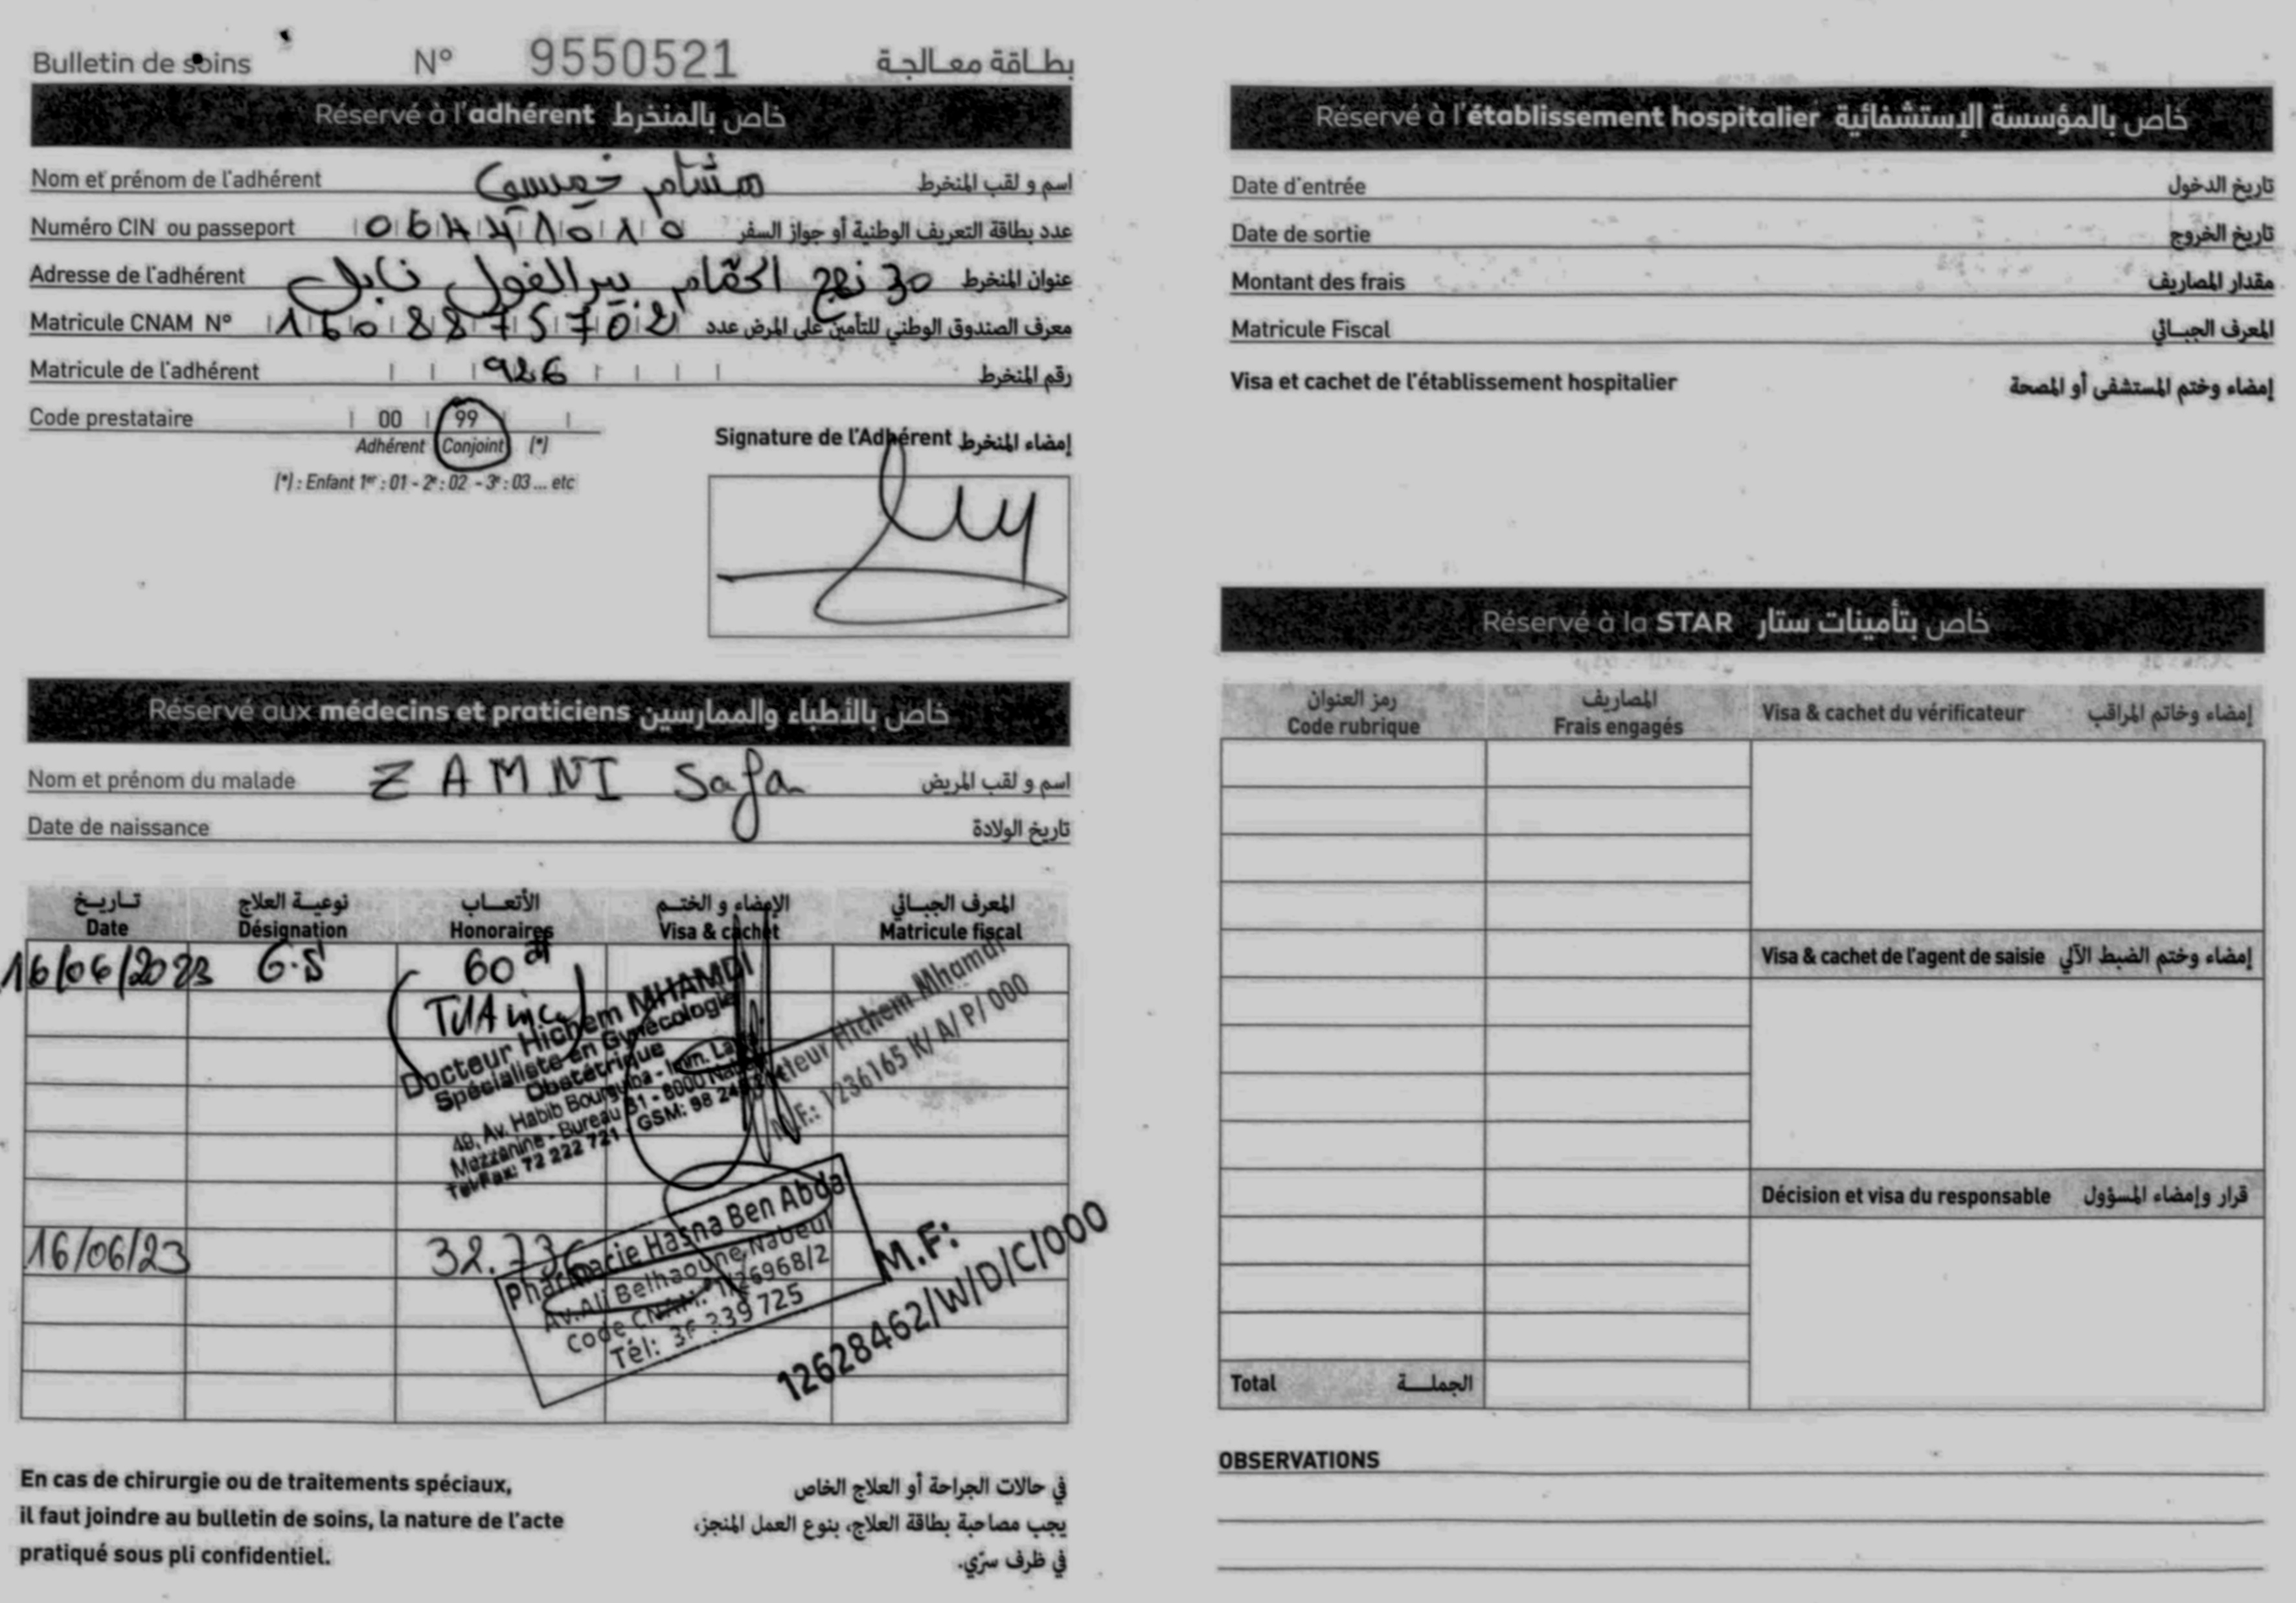 Bulletin de soins N° 9550521 بطاقة معالجة
Réservé à l'adhérent خاص بالمنخرط
Nom et prénom de l'adhérent هشام خميسي اسم و لقب المنخرط
Numéro CIN ou passeport عدد بطاقة التعريف الوطنية أو جواز السفر
Adresse de l'adhérent 30 نهج الحمّام بير الفول نابل عنوان المنخرط
Matricule CNAM N° 1608875702 معرف الصندوق الوطني للتأمين على المرض عدد
Matricule de l'adhérent 926 رقم المنخرط
Code prestataire 00 99
Adhérent Conjoint (*)
(*) : Enfant 1er : 01 - 2e : 02 - 3e : 03 ... etc
Signature de l'Adhérent إمضاء المنخرط
Réservé aux médecins et praticiens خاص بالأطباء والممارسين
Nom et prénom du malade ZAMNI Safa اسم و لقب المريض
Date de naissance تاريخ الولادة
تاريخ نوعية العلاج الأتعاب الإمضاء و الختم المعرف الجبائي
Date Désignation Honoraires Visa & cachet Matricule fiscal
16/06/2023 G.S 60 dt
Docteur Hichem MHAMDI
Spécialiste en Gynécologie
Obstétrique
49, Av. Habib Bourguiba - Imm.
Mezzanine - Bureau 31 - 8000 Nabeul
Tel/Fax: 72 222 721 - GSM: 98
Docteur Hichem Mhamdi
M.F.: 1236165 K/ A/ P/ 000
16/06/23 32.736
Pharmacie Hasna Ben Abda
Av. Ali Belhaoune Nabeul
Code CNAM: 1/26968/2
Tél: 725
M.F:
12628462/W/D/C/000
En cas de chirurgie ou de traitements spéciaux,
il faut joindre au bulletin de soins, la nature de l'acte
pratiqué sous pli confidentiel.
في حالات الجراحة أو العلاج الخاص
يجب مصاحبة بطاقة العلاج، بنوع العمل المنجز،
في ظرف سرّي.
Réservé à l'établissement hospitalier خاص بالمؤسسة الإستشفائية
Date d'entrée تاريخ الدخول
Date de sortie تاريخ الخروج
Montant des frais مقدار المصاريف
Matricule Fiscal المعرف الجبائي
Visa et cachet de l'établissement hospitalier إمضاء وختم المستشفى أو المصحة
Réservé à la STAR خاص بتأمينات ستار
رمز العنوان المصاريف
Code rubrique Frais engagés
Visa & cachet du vérificateur إمضاء وخاتم المراقب
Visa & cachet de l'agent de saisie إمضاء وختم الضبط الآلي
Décision et visa du responsable قرار وإمضاء المسؤول
Total الجملة
OBSERVATIONS